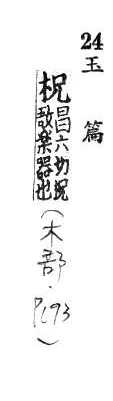 24玉篇
柷昌六切柷敔樂器也(木部·P193)